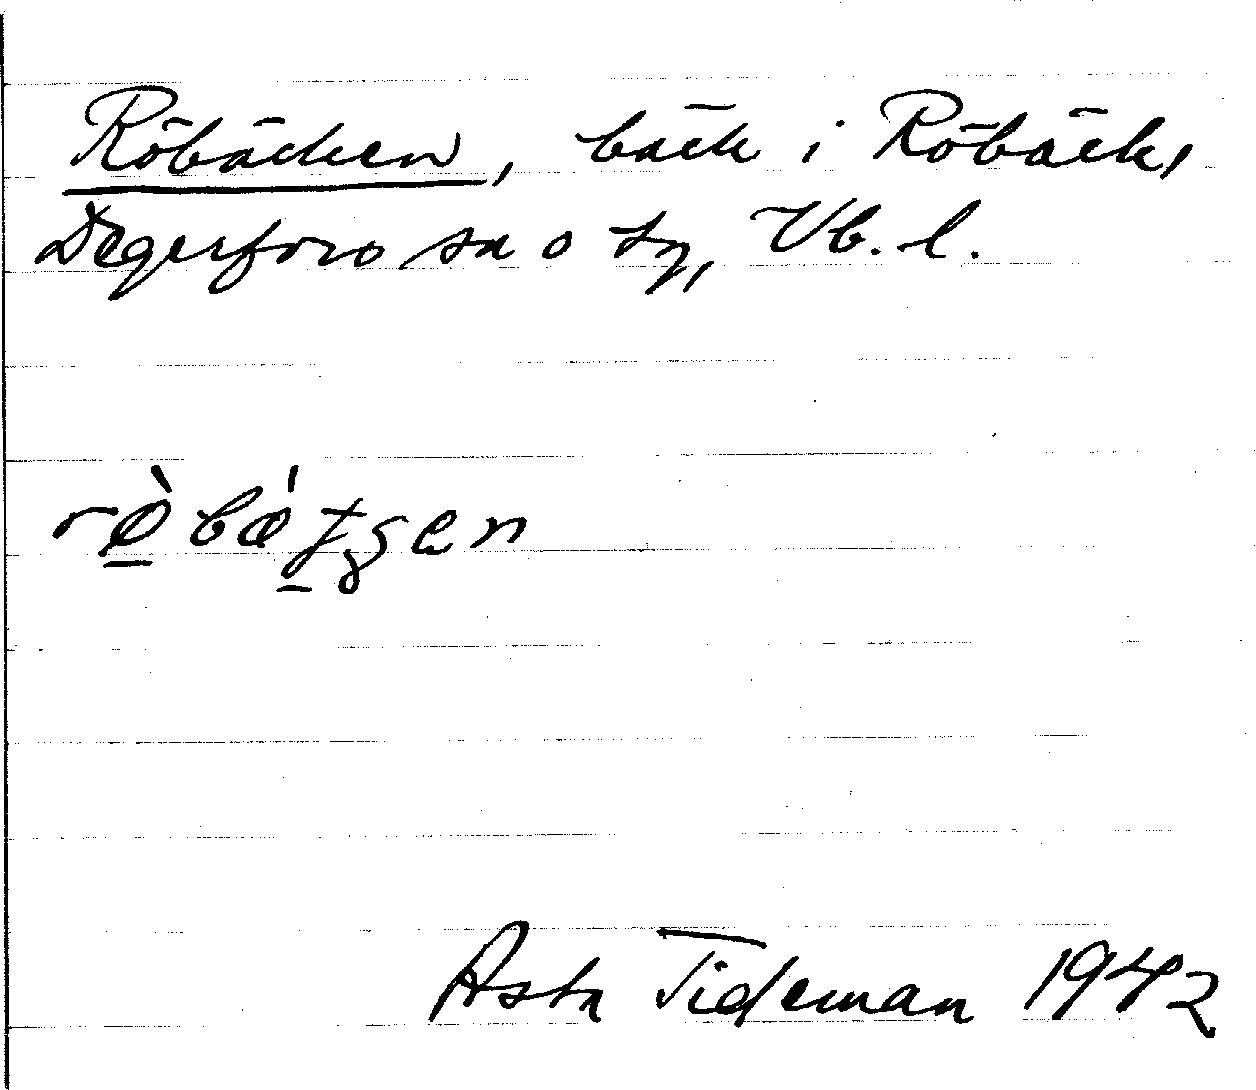 Röbäcken, bäck i Röbäck,
Degerfors sn o tg, Vb. l.
rø̱̀bǽt̠ʒen
Asta Tideman 1942